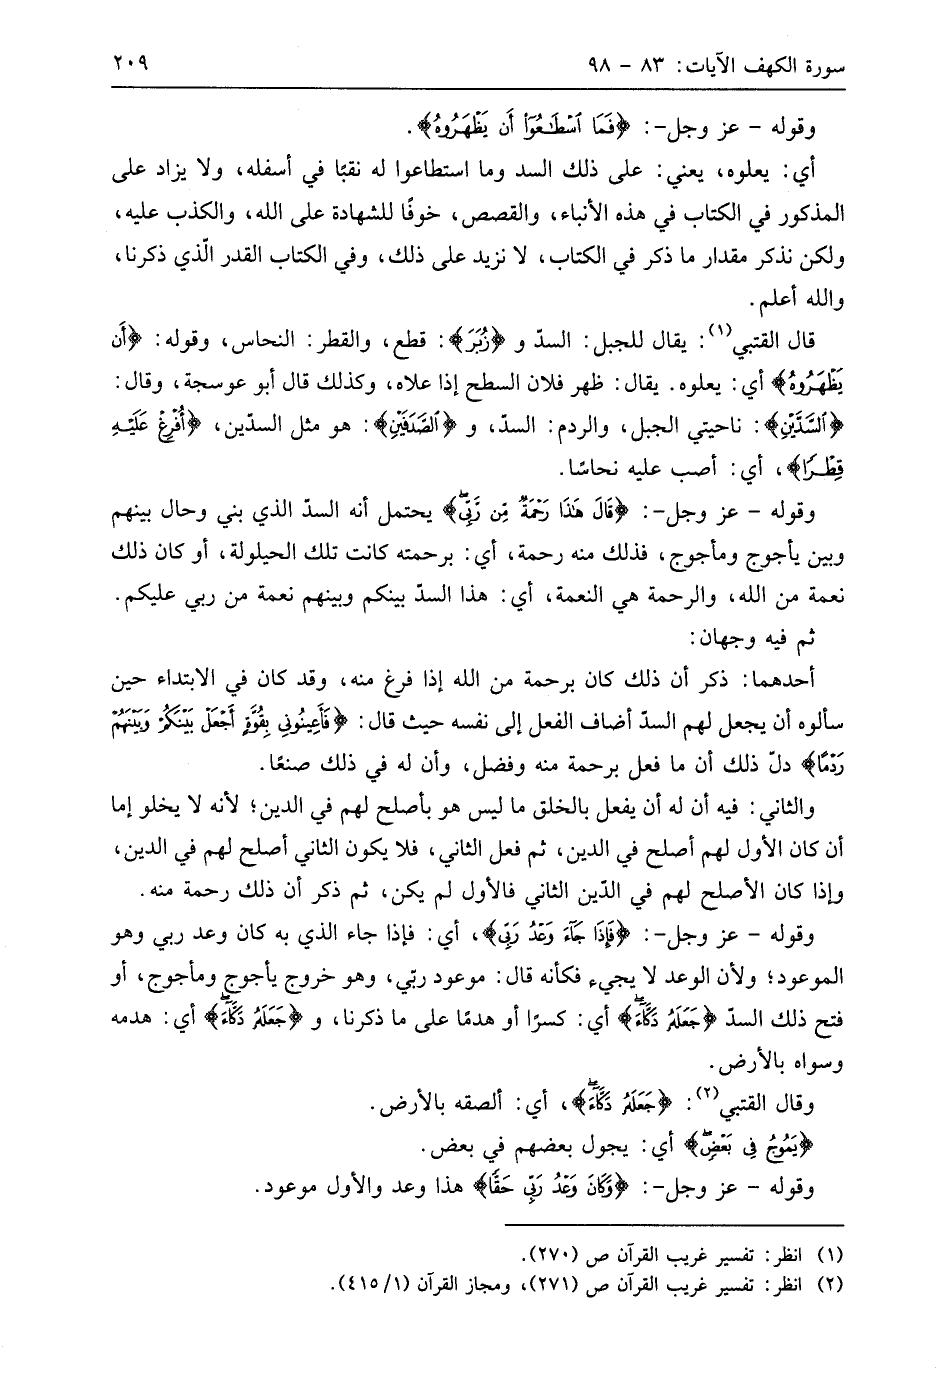 سورة الكهف الآيات: ٨٣ - ٩٨
٢٠٩
وقوله - عز وجل-: ﴿فَمَا ٱسْطَٰعُوٓا۟ أَن يَظْهَرُوهُ﴾.
أي: يعلوه، يعني: على ذلك السد وما استطاعوا له نقبًا في أسفله، ولا يزاد على
المذكور في الكتاب في هذه الأنباء، والقصص، خوفًا للشهادة على الله، والكذب عليه،
ولكن نذكر مقدار ما ذكر في الكتاب، لا نزيد على ذلك، وفي الكتاب القدر الّذي ذكرنا،
والله أعلم.
قال القتبي(١): يقال للجبل: السدّ و ﴿زُبَرَ﴾: قطع، والقطر: النحاس، وقوله: ﴿أَن
يَظْهَرُوهُ﴾ أي: يعلوه. يقال: ظهر فلان السطح إذا علاه، وكذلك قال أبو عوسجة، وقال:
﴿ٱلسَّدَّيْنِ﴾: ناحيتي الجبل، والردم: السدّ، و ﴿ٱلصَّدَفَيْنِ﴾: هو مثل السدّين، ﴿أُفْرِغْ عَلَيْهِ
قِطْرًا﴾، أي: أصب عليه نحاسًا.
وقوله - عز وجل-: ﴿قَالَ هَٰذَا رَحْمَةٌ مِّن رَّبِّىۖ﴾ يحتمل أنه السدّ الذي بني وحال بينهم
وبين يأجوج ومأجوج، فذلك منه رحمة، أي: برحمته كانت تلك الحيلولة، أو كان ذلك
نعمة من الله، والرحمة هي النعمة، أي: هذا السدّ بينكم وبينهم نعمة من ربي عليكم.
ثم فيه وجهان:
أحدهما: ذكر أن ذلك كان برحمة من الله إذا فرغ منه، وقد كان في الابتداء حين
سألوه أن يجعل لهم السدّ أضاف الفعل إلى نفسه حيث قال: ﴿فَأَعِينُونِى بِقُوَّةٍ أَجْعَلْ بَيْنَكُمْ وَبَيْنَهُمْ
رَدْمًا﴾ دلّ ذلك أن ما فعل برحمة منه وفضل، وأن له في ذلك صنعًا.
والثاني: فيه أن له أن يفعل بالخلق ما ليس هو بأصلح لهم في الدين؛ لأنه لا يخلو إما
أن كان الأول لهم أصلح في الدين، ثم فعل الثاني، فلا يكون الثاني أصلح لهم في الدين،
وإذا كان الأصلح لهم في الدّين الثاني فالأول لم يكن، ثم ذكر أن ذلك رحمة منه.
وقوله - عز وجل-: ﴿فَإِذَا جَآءَ وَعْدُ رَبِّى﴾، أي: فإذا جاء الذي به كان وعد ربي وهو
الموعود؛ ولأن الوعد لا يجيء فكأنه قال: موعود ربّي، وهو خروج يأجوج ومأجوج، أو
فتح ذلك السدّ ﴿جَعَلَهُۥ دَكَّآءَۖ﴾ أي: كسرًا أو هدمًا على ما ذكرنا، و ﴿جَعَلَهُۥ دَكَّآءَۖ﴾ أي: هدمه
وسواه بالأرض.
وقال القتبي(٢): ﴿جَعَلَهُۥ دَكَّآءَۖ﴾، أي: ألصقه بالأرض.
﴿يَمُوجُ فِى بَعْضٍۖ﴾ أي: يجول بعضهم في بعض.
وقوله - عز وجل-: ﴿وَكَانَ وَعْدُ رَبِّى حَقًّا﴾ هذا وعد والأول موعود.
(١) انظر: تفسير غريب القرآن ص (٢٧٠).
(٢) انظر: تفسير غريب القرآن ص (٢٧١)، ومجاز القرآن (١/ ٤١٥).